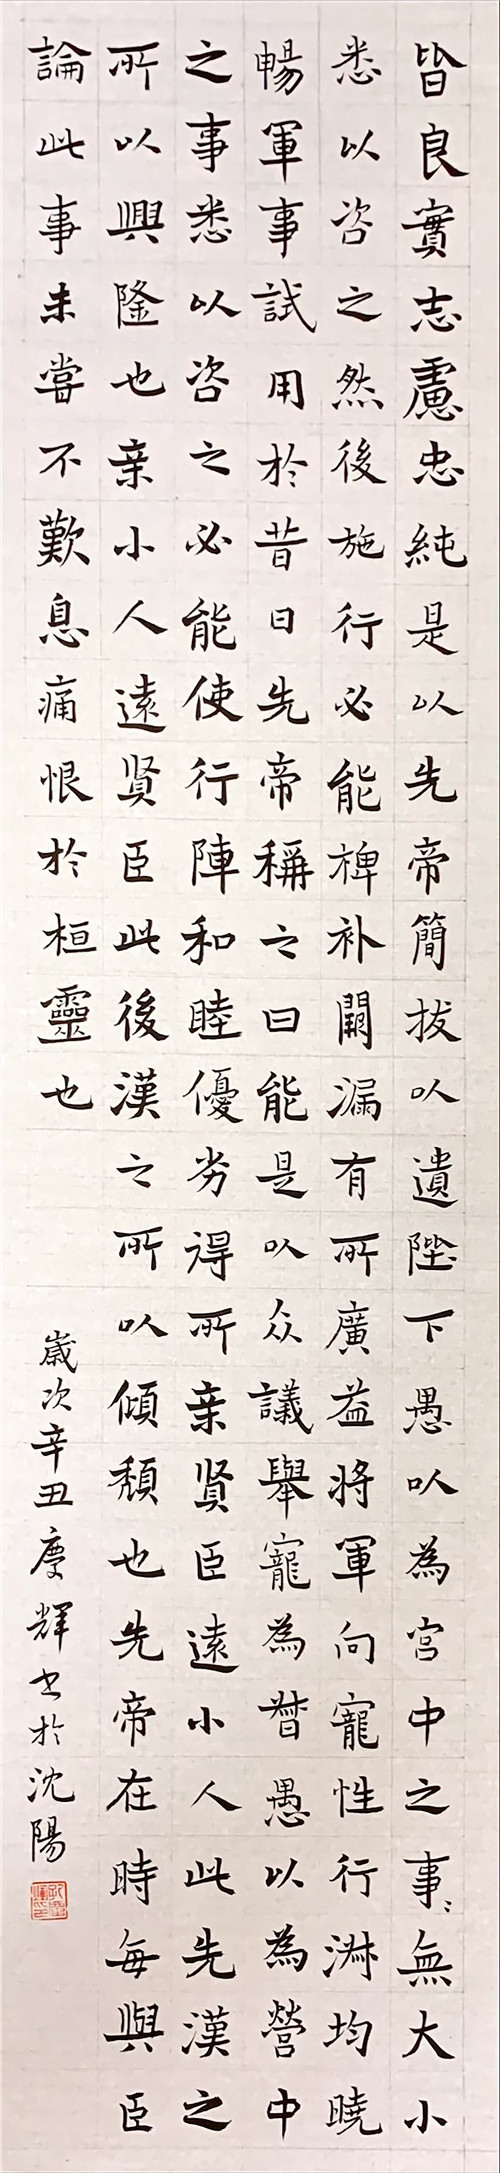 皆良實志慮忠純是以先帝簡拔以遺陛下愚以為宮中之事〻無大小
悉以咨之然後施行必能裨补闕漏有所廣益將軍向寵性行淑均曉
暢軍事試用於昔日先帝稱之曰能是以众議舉寵為督愚以為營中
之事悉以咨之必能使行陣和睦優劣得所亲贤臣遠小人此先漢之
所以興隆也亲小人遠贤臣此後漢之所以傾頹也先帝在時每與臣
論此事未嘗不歎息痛恨於桓靈也
歲次辛丑慶輝书於沈陽